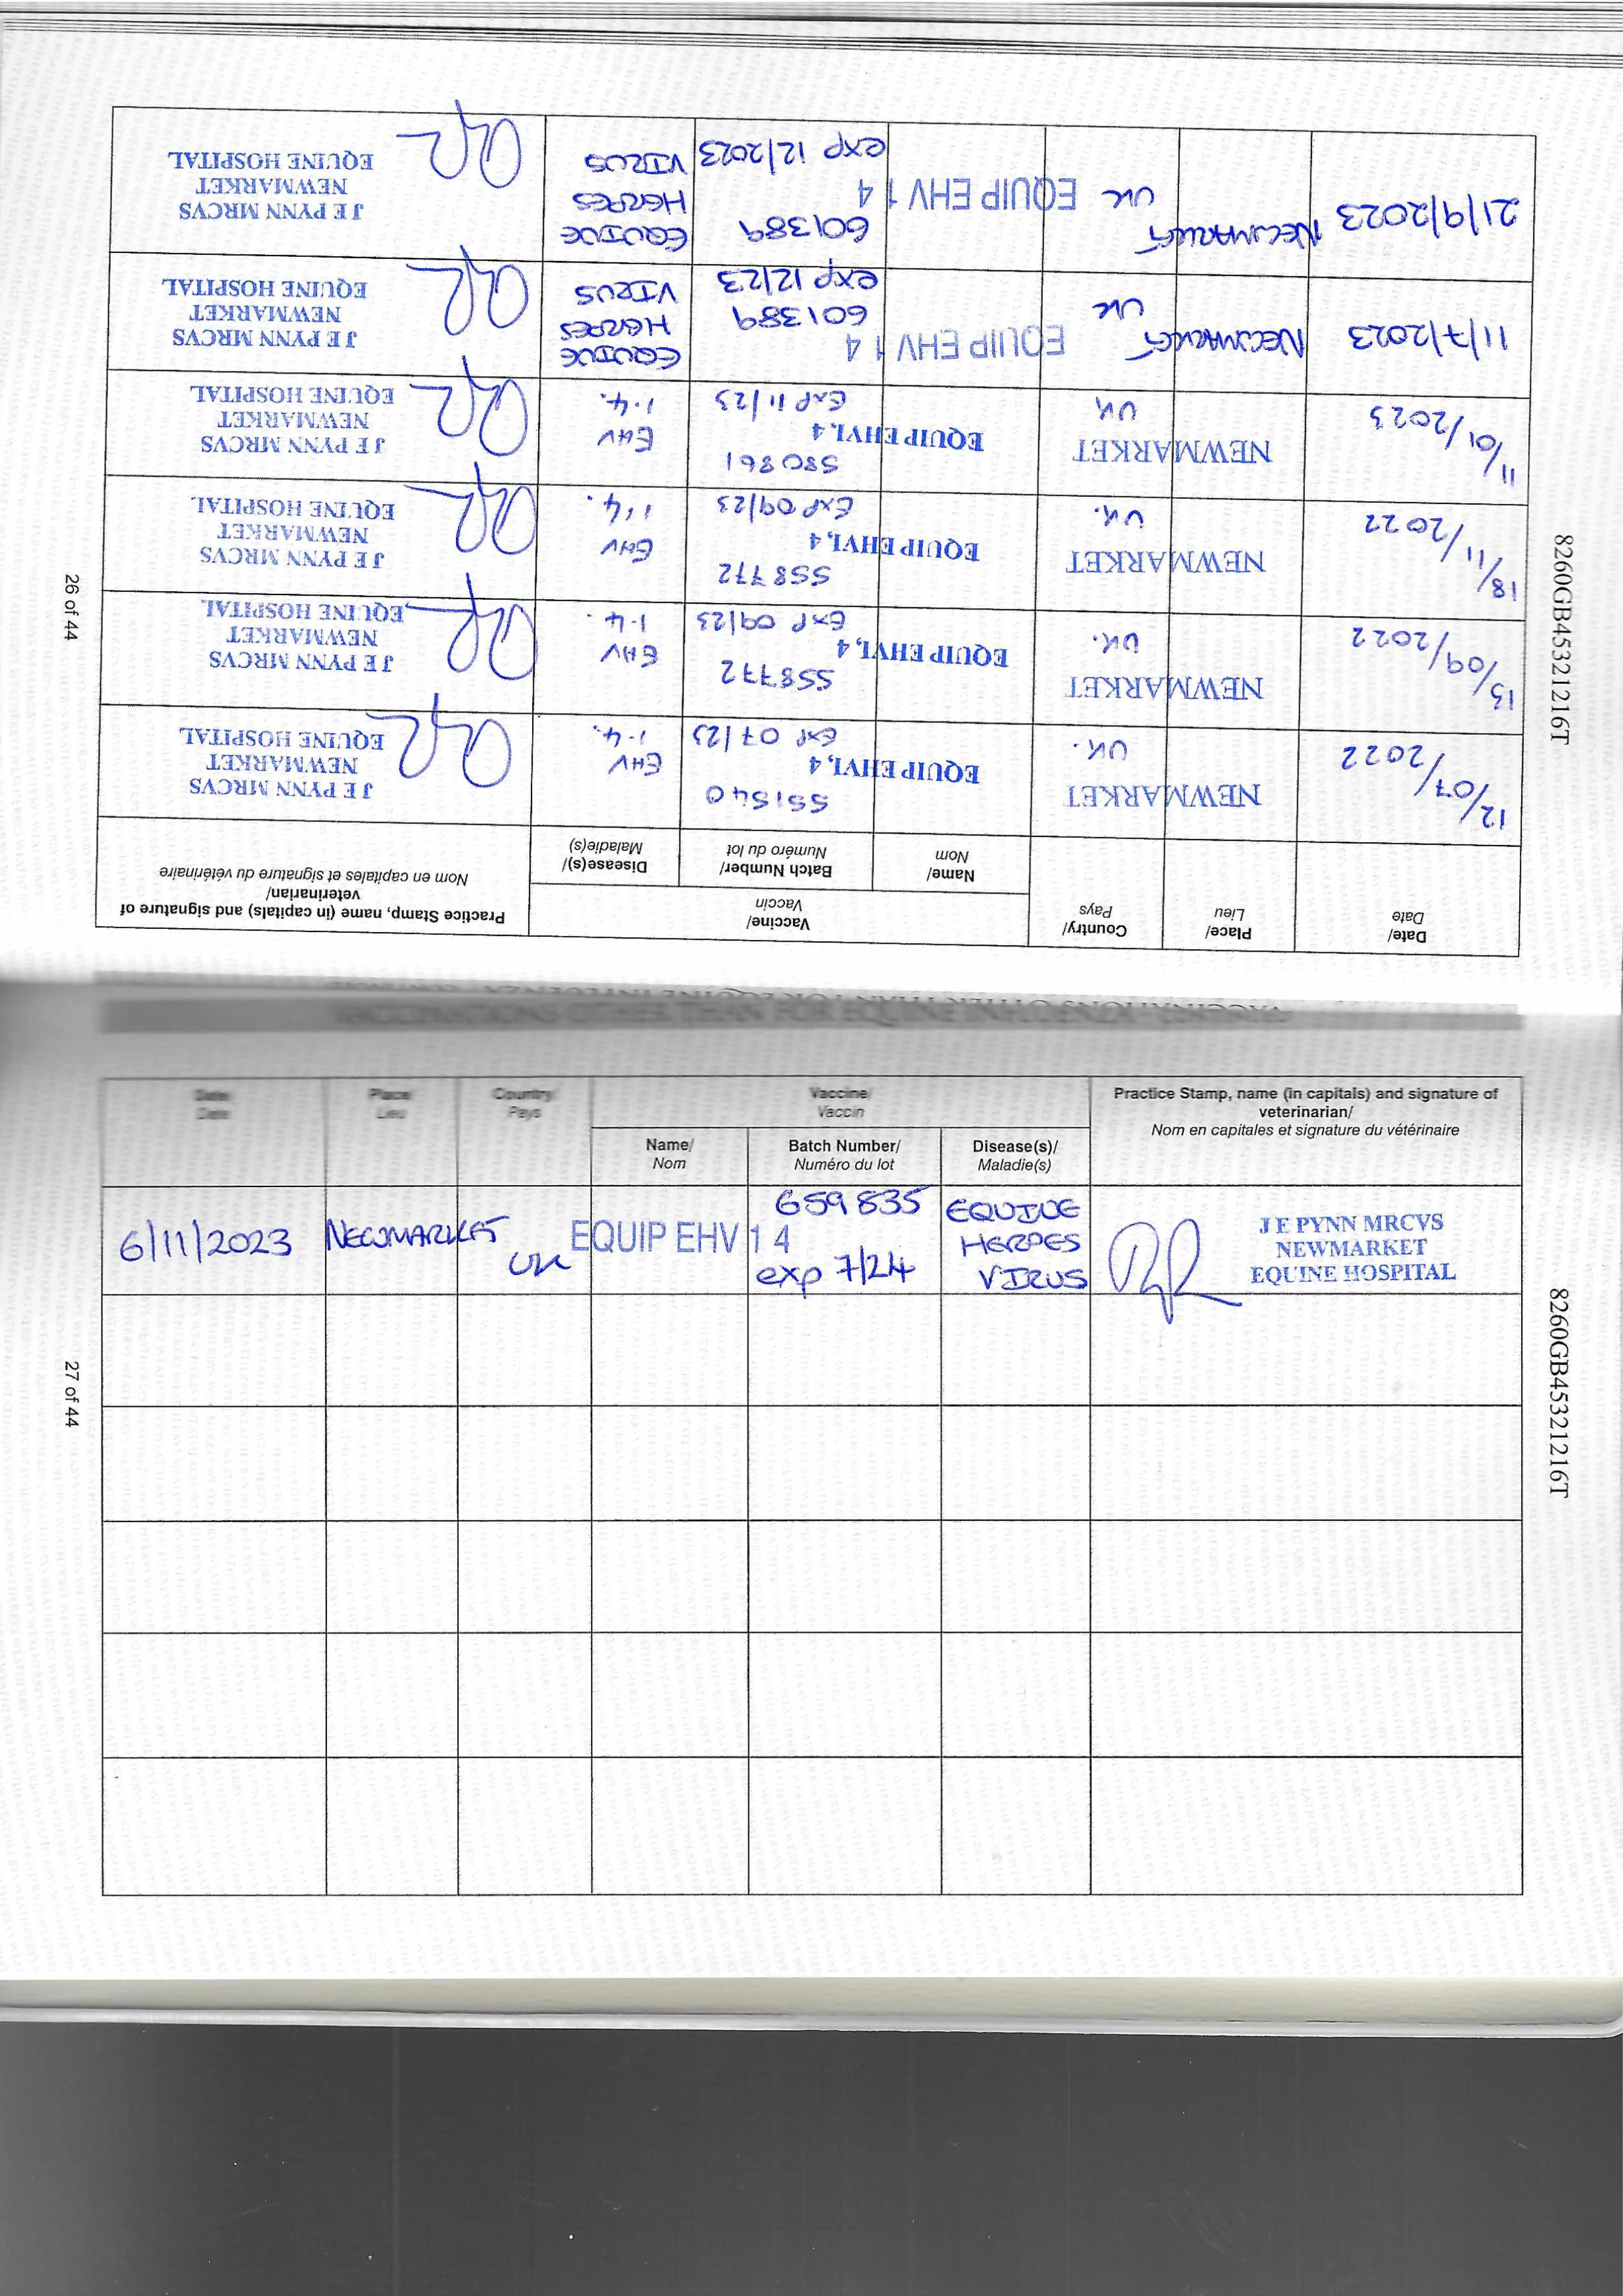 26 of 44
8260GB45321216T
Date/ Place/ Country/ Vaccine/ Practice Stamp, name (in capitals) and signature of
Date Lieu Pays Vaccin veterinarian/
Name/ Batch Number/ Disease(s)/ Nom en capitales et signature du vétérinaire
Nom Numéro du lot Maladie(s)
12/07/2022 NEWMARKET UK. EQUIP EHV1,4 551540 EXP 07/23 EHV 1.4. J E PYNN MRCVS
NEWMARKET
EQUINE HOSPITAL
13/09/2022 NEWMARKET UK. EQUIP EHV1,4 558772 EXP 09/23 EHV 1.4 J E PYNN MRCVS
NEWMARKET
EQUINE HOSPITAL
18/11/2022 NEWMARKET UK. EQUIP EHV1,4 558772 EXP 09/23 EHV 1,4. J E PYNN MRCVS
NEWMARKET
EQUINE HOSPITAL
11/01/2023 NEWMARKET UK EQUIP EHV1,4 580861 EXP 11/23 EHV 1.4. J E PYNN MRCVS
NEWMARKET
EQUINE HOSPITAL
11/7/2023 NEWMARKET UK EQUIP EHV 1 4 601389 exp 12/23 EQUINE HERPES VIRUS J E PYNN MRCVS
NEWMARKET
EQUINE HOSPITAL
21/9/2023 NEWMARKET UK EQUIP EHV 1 4 601389 exp 12/2023 EQUINE HERPES VIRUS J E PYNN MRCVS
NEWMARKET
EQUINE HOSPITAL
VACCINATIONS OTHER THAN FOR EQUINE INFLUENZA
Date/ Place/ Country/ Vaccine/ Practice Stamp, name (in capitals) and signature of
Date Lieu Pays Vaccin veterinarian/
Name/ Batch Number/ Disease(s)/ Nom en capitales et signature du vétérinaire
Nom Numéro du lot Maladie(s)
6/11/2023 NEWMARKET UK EQUIP EHV 1 4 659835 exp 7/24 EQUINE HERPES VIRUS J E PYNN MRCVS
NEWMARKET
EQUINE HOSPITAL
27 of 44
8260GB45321216T